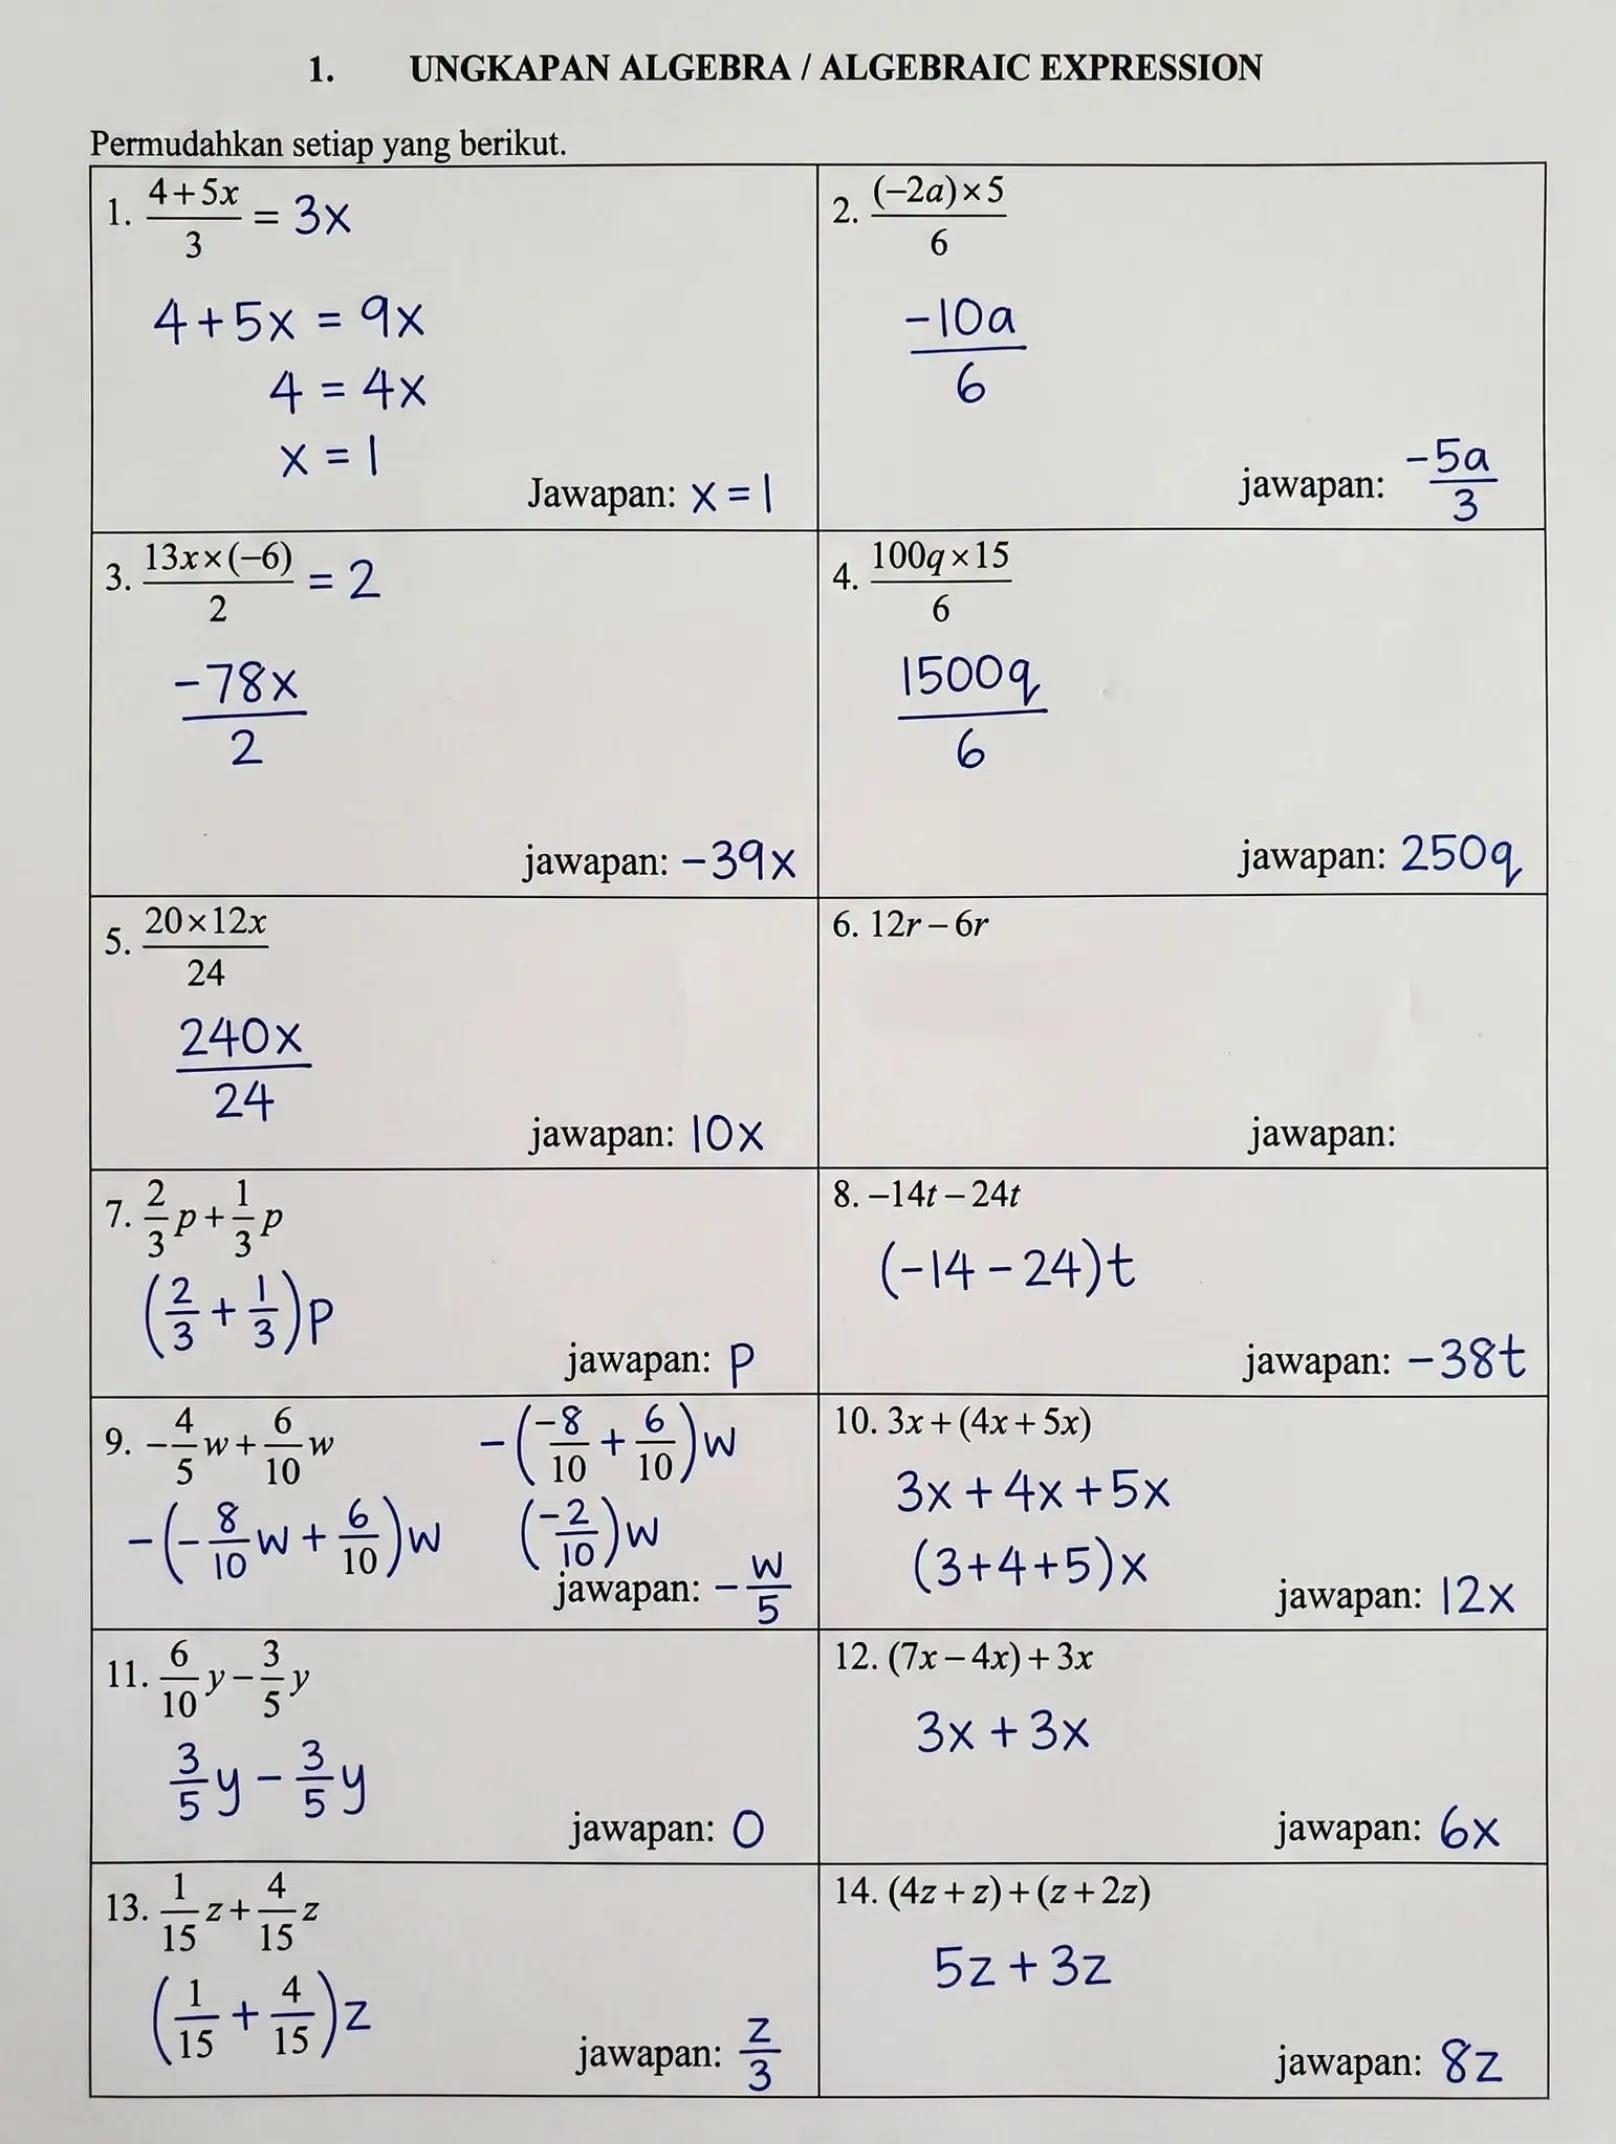 1. UNGKAPAN ALGEBRA / ALGEBRAIC EXPRESSION
Permudahkan setiap yang berikut.
1. (4+5x)/3 = 3x
4+5x = 9x
4 = 4x
x = 1
Jawapan: x = 1
2. ((–2a)×5)/6
-10a/6
jawapan: -5a/3
3. (13x×(–6))/2 = 2
-78x/2
jawapan: -39x
4. (100q×15)/6
1500q/6
jawapan: 250q
5. (20×12x)/24
240x/24
jawapan: 10x
6. 12r – 6r
jawapan:
7. 2/3 p + 1/3 p
(2/3 + 1/3)p
jawapan: p
8. –14t – 24t
(-14 - 24)t
jawapan: -38t
9. -4/5 w + 6/10 w
-(-8/10 w + 6/10)w
-(-8/10 + 6/10)w
(-2/10)w
jawapan: -w/5
10. 3x + (4x + 5x)
3x + 4x + 5x
(3+4+5)x
jawapan: 12x
11. 6/10 y – 3/5 y
3/5 y - 3/5 y
jawapan: 0
12. (7x – 4x) + 3x
3x + 3x
jawapan: 6x
13. 1/15 z + 4/15 z
(1/15 + 4/15)z
jawapan: z/3
14. (4z + z) + (z + 2z)
5z + 3z
jawapan: 8z